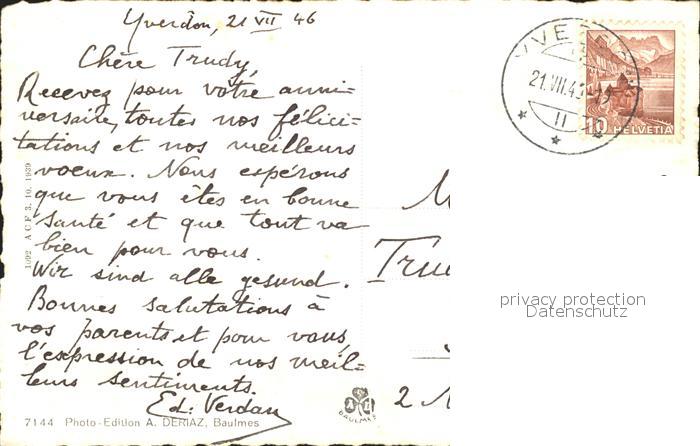 Yverdon, 21 VII 46
Chère Trudy,
Recevez pour votre anni-
versaire, toutes nos félici-
tations et nos meilleurs
voeux. Nous espérons
que vous êtes en bonne
santé et que tout va
bien pour vous.
Wir sind alle gesund.
Bonnes salutations à
vos parents et pour vous,
l'expression de nos meil-
leurs sentiments.
Ed. Verdan
7144 Photo-Edition A. DERIAZ, Baulmes
1092 ACF 3. 10. 1939
BAULMES
YVERDON
21.VII.46
II
10 HELVETIA
M
Tru
2 M
privacy protection
Datenschutz